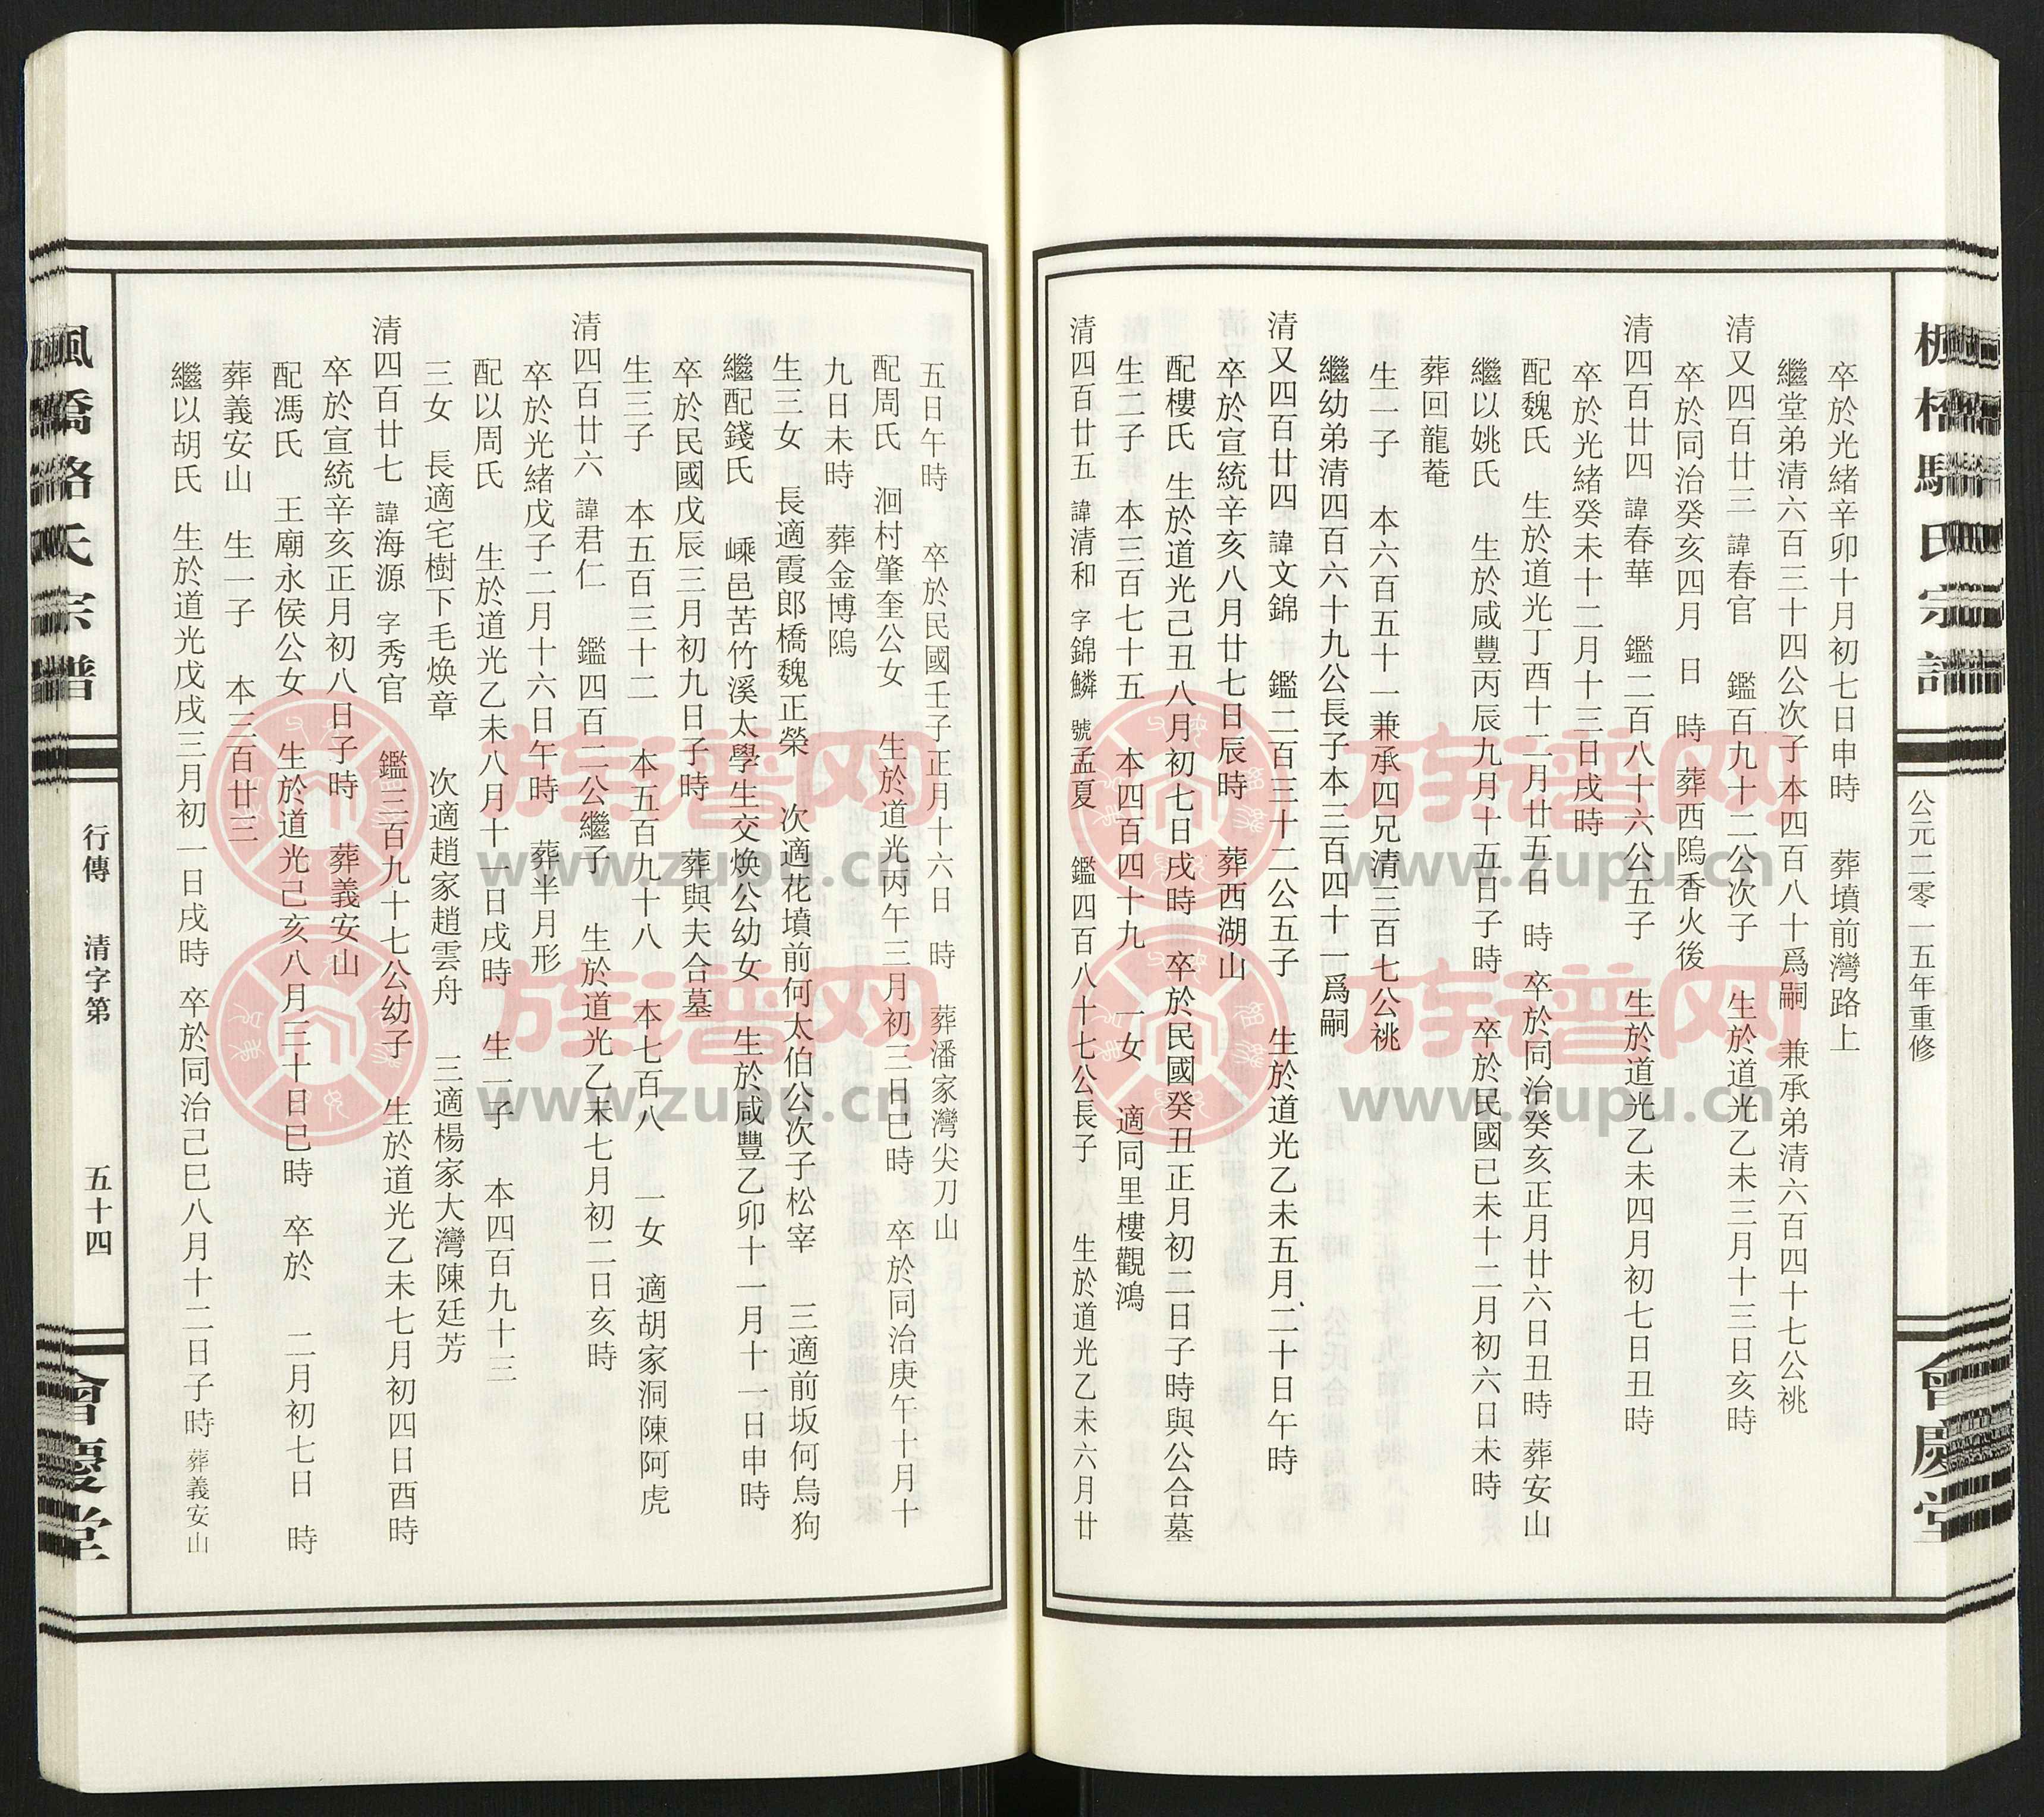 楓橋駱氏宗譜
公元二零一五年重修
會慶堂
卒於光緒辛卯十月初七日申時 葬墳前灣路上
繼堂弟清六百三十四公次子本四百八十爲嗣 兼承弟清六百四十七公祧
清又四百廿三 諱春官 鑑百九十二公次子 生於道光乙未三月十三日亥時
卒於同治癸亥四月 日 時 葬西隖香火後
清四百廿四 諱春華 鑑二百八十六公五子 生於道光乙未四月初七日丑時
卒於光緒癸未十二月十三日戌時
配魏氏 生於道光丁酉十二月廿五日 時 卒於同治癸亥正月廿六日丑時 葬安山
繼以姚氏 生於咸豐丙辰九月十五日子時 卒於民國已未十二月初六日未時
葬回龍菴
生一子 本六百五十一兼承四兄清三百七公祧
繼幼弟清四百六十九公長子本三百四十一爲嗣
清又四百廿四 諱文錦 鑑二百三十二公五子 生於道光乙未五月二十日午時
卒於宣統辛亥八月廿七日辰時 葬西湖山
配樓氏 生於道光己丑八月初七日戌時 卒於民國癸丑正月初二日子時與公合墓
生二子 本三百七十五 本四百四十九 一女 適同里樓觀鴻
清四百廿五 諱清和 字錦鱗 號孟夏 鑑四百八十七公長子 生於道光乙未六月廿
五日午時 卒於民國壬子正月十六日 時 葬潘家灣尖刀山
配周氏 洄村肇奎公女 生於道光丙午三月初三日巳時 卒於同治庚午十月十
九日未時 葬金博隖
生三女 長適霞郎橋魏正榮 次適花墳前何太伯公次子松宰 三適前坂何烏狗
繼配錢氏 嵊邑苦竹溪太學生交焕公幼女 生於咸豐乙卯十一月十一日申時
卒於民國戊辰三月初九日子時 葬與夫合墓
生三子 本五百三十二 本五百九十八 本七百八 一女 適胡家洞陳阿虎
清四百廿六 諱君仁 鑑四百二公繼子 生於道光乙未七月初二日亥時
卒於光緒戊子二月十六日午時 葬半月形
配以周氏 生於道光乙未八月十一日戌時 生一子 本四百九十三
三女 長適宅樹下毛焕章 次適趙家趙雲舟 三適楊家大灣陳廷芳
清四百廿七 諱海源 字秀官 鑑三百九十七公幼子 生於道光乙未七月初四日酉時
卒於宣統辛亥正月初八日子時 葬義安山
配馮氏 王廟永侯公女 生於道光己亥八月三十日巳時 卒於 二月初七日 時
葬義安山 生一子 本三百廿三
繼以胡氏 生於道光戊戌三月初一日戌時 卒於同治己巳八月十二日子時 葬義安山
楓橋駱氏宗譜
行傳 清字第 五十四
會慶堂
族谱网
www.zupu.cn
族谱网
www.zupu.cn
族谱网
www.zupu.cn
族谱网
www.zupu.cn